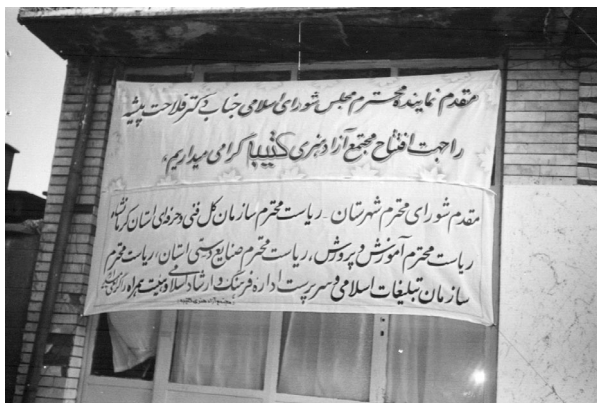 مقدم نماینده محترم مجلس شورای اسلامی جناب دکتر فلاحت پیشه
را جهت افتتاح مجتمع آزاد هنری کتیبا گرامی میداریم،
مقدم شورای محترم شهرستان - ریاست محترم سازمان کل فنی و حرفه‌ای استان کرمانشاه
ریاست محترم آموزش و پرورش، ریاست محترم صنایع دستی استان، ریاست محترم
سازمان تبلیغات اسلامی و سرپرست اداره فرهنگ و ارشاد اسلامی و هیئت همراه را گرامی